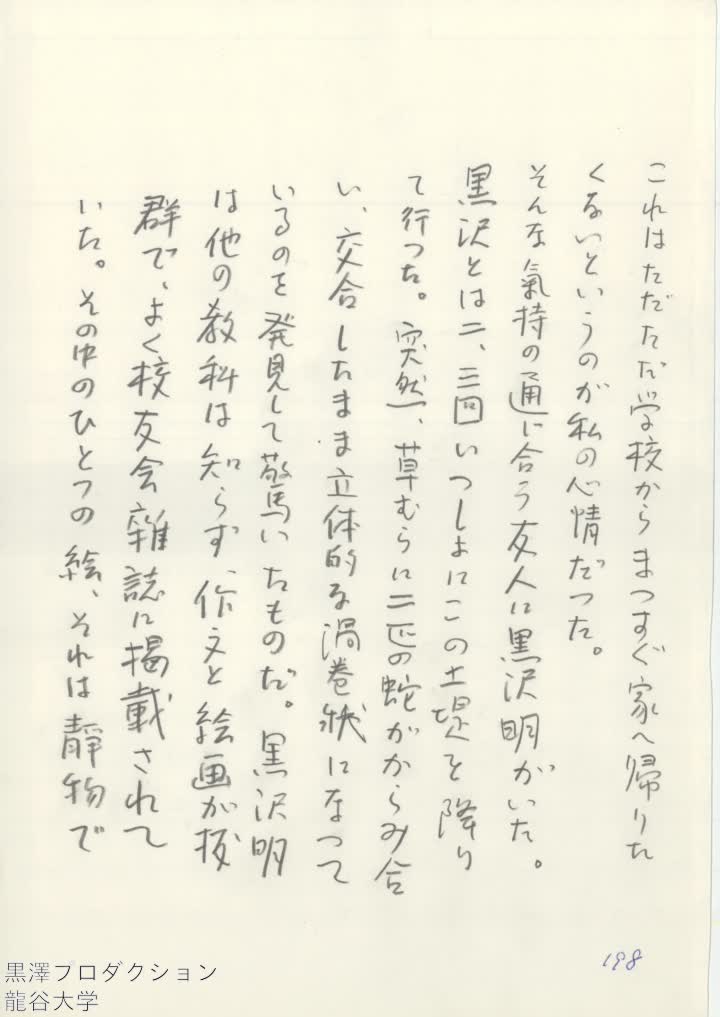 これはただただ学校からまつすぐ家へ帰りた
くないというのが私の心情だつた。
そんな氣持の通じ合う友人に黒沢明がいた。
黒沢とは二、三回いつしよにこの土堤を降り
て行つた。突然、草むらに二匹の蛇がからみ合
い、交合したまま立体的な渦巻状になつて
いるのを発見して驚いたものだ。黒沢明
は他の教科は知らず、作文と絵画が抜
群で、よく校友会雑誌に掲載されて
いた。その中のひとつの絵、それは静物で
198
黒澤フロダクション
龍谷大学